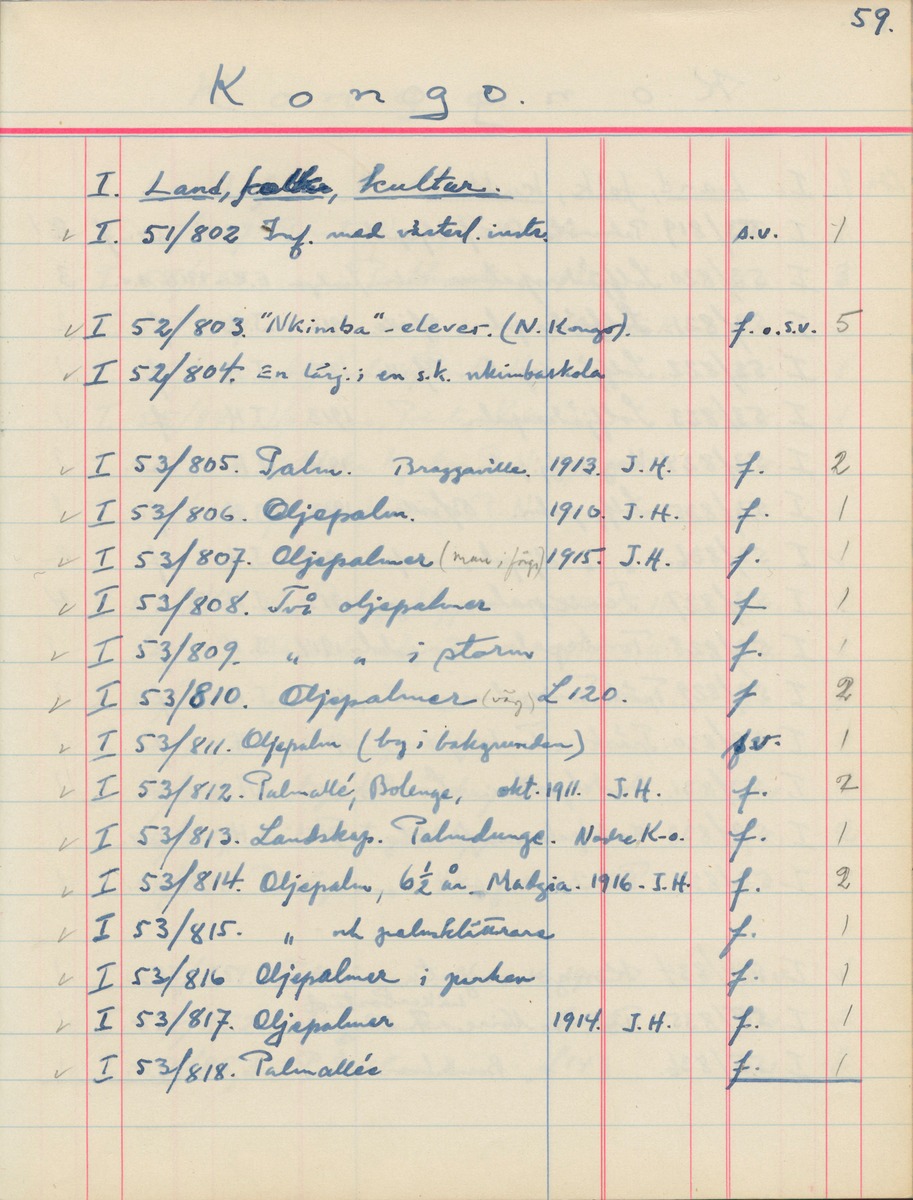 59.
Kongo.
I. Land, folk, kultur.
I. 51/802 Inf. med västerl. instr. s.v. 1
I 52/803. "Nkimba"-elever. (N. Kongo). f. o. s.v. 5
I 52/804. En lärj. i en s.k. nkimbaskola
I 53/805. Palm. Brazzaville. 1913. J.H. f. 2
I 53/806. Oljepalm. 1910. J.H. f. 1
I 53/807. Oljepalmer (man i färg) 1915. J.H. f. 1
I 53/808. Två oljepalmer f 1
I 53/809. " " i storm f. 1
I 53/810. Oljepalmer (väg) L 120. f 2
I 53/811. Oljepalm (by i bakgrunden) sv. 1
I 53/812. Palmallé, Bolenge, okt. 1911. J.H. f. 2
I 53/813. Landskap. Palmdunge. Nedre K-o. f. 1
I 53/814. Oljepalm, 6½ år. Matzia. 1916. J.H. f. 2
I 53/815. " och palmklättrare f. 1
I 53/816 Oljepalmer i parken f. 1
I 53/817. Oljepalmer 1914. J.H. f. 1
I 53/818. Palmallée f. 1